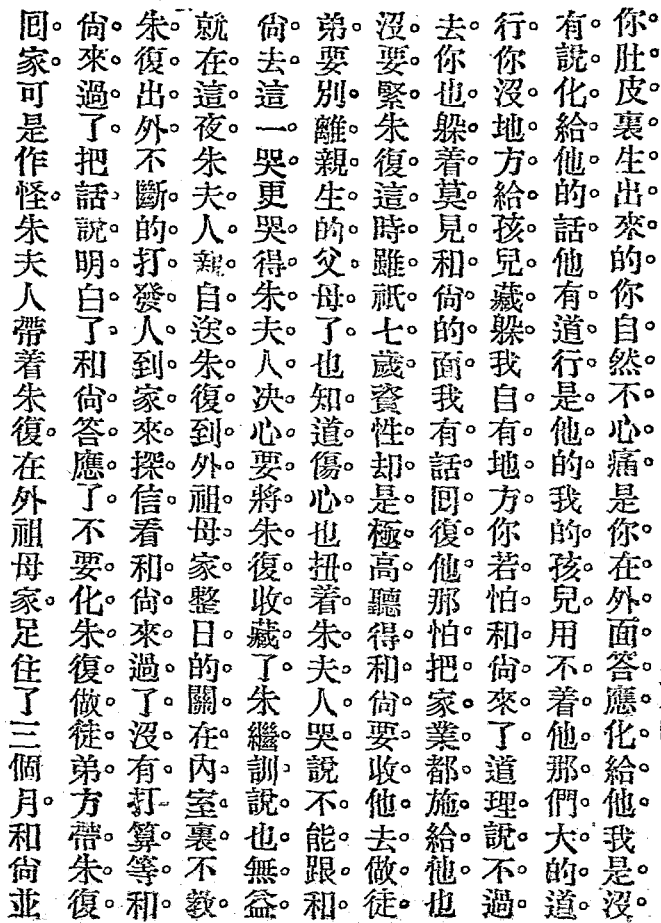 你肚皮裏生出來的你自然不心痛是你在外面答應化給他我是沒
有說化給他的話他有道行是他的我的孩兒用不着他那們大的道
行你沒地方給孩兒藏躲我自有地方你若怕和尙來了道理說不過
去你也躲着莫見和尙的面我有話囘復他那怕把家業都施給他也
沒要緊朱復這時雖祇七歲資性却是極高聽得和尙要收他去做徒
弟要別離親生的父母了也知道傷心也扭着朱夫人哭說不能跟和
尙去這一哭更哭得朱夫人决心要將朱復收藏了朱繼訓說也無益
就在這夜朱夫人親自送朱復到外祖母家整日的關在內室裏不敎
朱復出外不斷的打發人到家來探信看和尙來過了沒有打算等和
尙來過了把話說明白了和尙答應了不要化朱復做徒弟方帶朱復
囘家可是作怪朱夫人帶着朱復在外祖母家足住了三個月和尙並